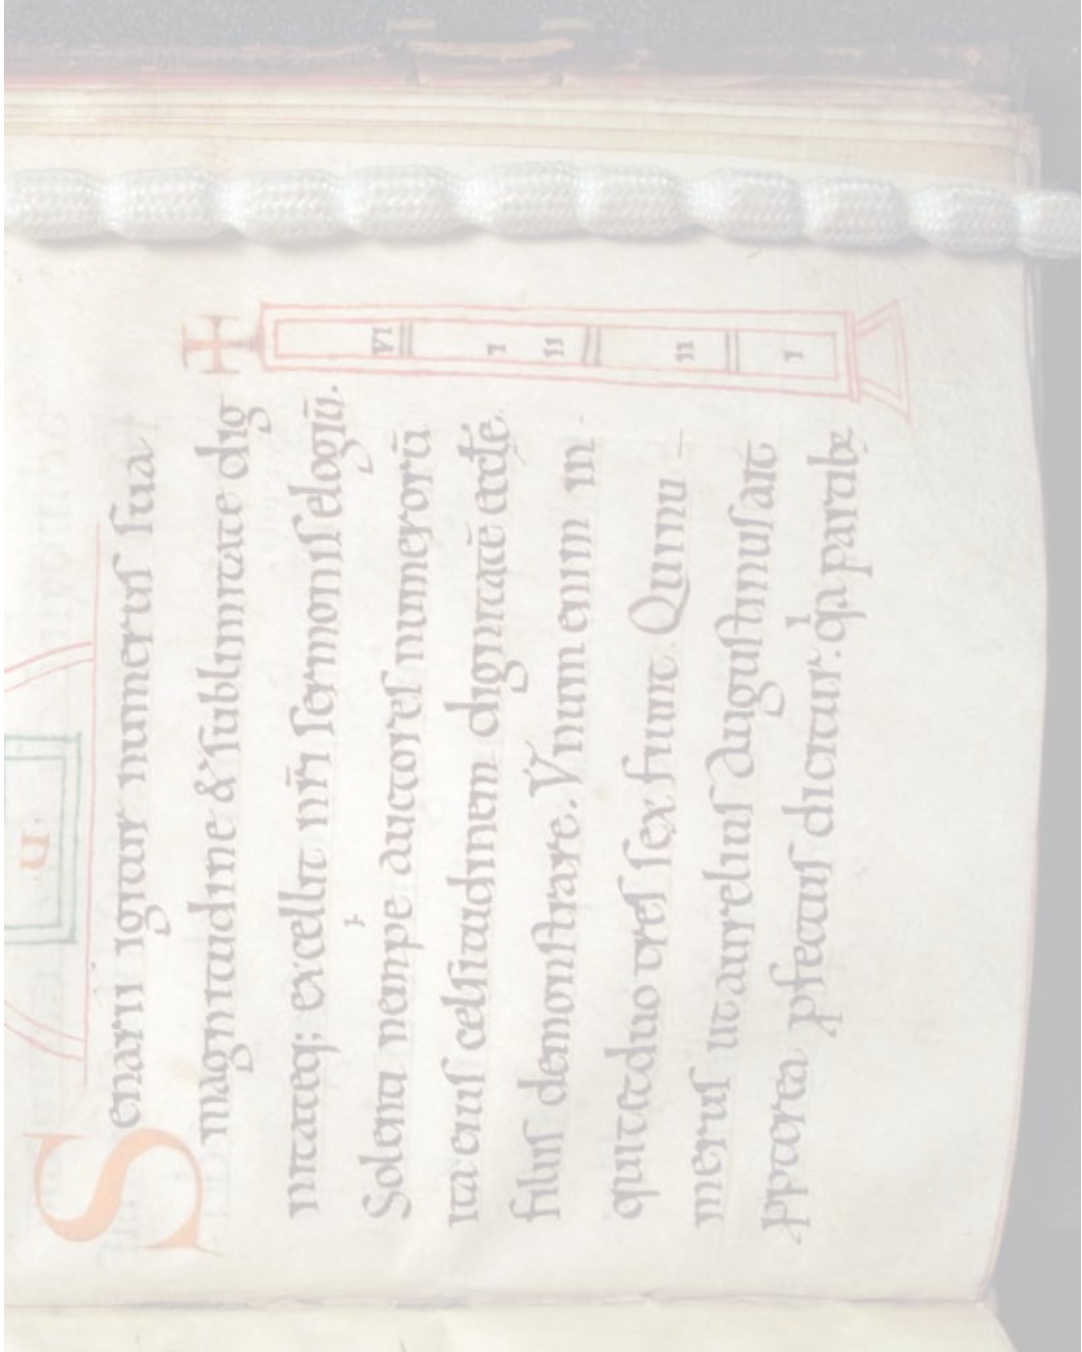 Senarii igitur numerus sua
magnitudine & sublimitate dig
nitateq; excellit nr̄i sermonis elogiū.
Solent nempe auctores numerorū
ita eius celsitudinem dignitatē eccłe
filiis demonstrare. Vnum enim in
quit & duo & tres sex fiunt. Qui nu
merus ut aurelius augustinus ait
ꝓpterea ꝑfectus dicitur. qa parabʒ
VI
I
II
II
I
U